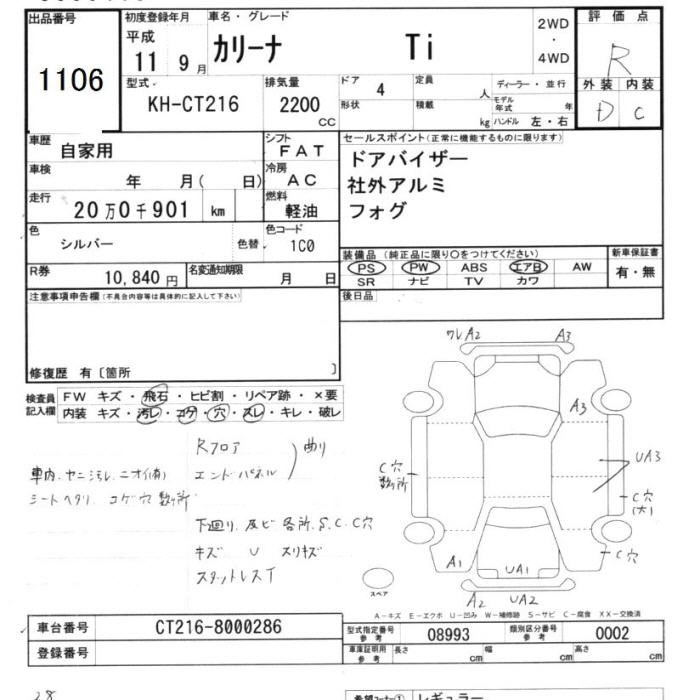 出品番号 初度登録年月 車名・グレード 2WD ・ 4WD 評価点
1106 平成 11 9月 カリーナ Ti R
型式 排気量 ドア 定員 ディーラー・並行 外装 内装
KH-CT216 2200 CC 4 人 モデル年式 年 D C
形状 積載 kg ハンドル 左・右
車歴 自家用 シフト FAT セールスポイント(正常に機能するものに限ります)
車検 年 月( 日) 冷房 AC ドアバイザー
社外アルミ
走行 20万0千901 km 燃料 軽油 フォグ
色 シルバー 色替 色コード 1C0
装備品(純正品に限り○をつけてください) 新車保証書
R券 10,840円 名変通知期限 月 日 PS PW ABS エアB AW 有・無
SR ナビ TV カワ
注意事項申告欄(不具合内容等は具体的に記入して下さい) 後日品
修復歴 有〔箇所 〕
検査員記入欄 FW キズ・飛石・ヒビ割・リペア跡・×要
内装 キズ・汚レ・コゲ・穴・スレ・キレ・破レ
ワレA2 A3
A3
Rフロア
エンドパネル 曲り
車内.ヤニ汚レ.ニオイ(有)
シートヘタリ コゲ穴 数ヶ所
C穴 数ヶ所
UA3
C穴(大)
C穴
下廻り.サビ 各所.S.C.C穴
キズ U スリキズ
スタットレスT
A1 UA1
A2 UA2
スペア
A-キズ E-エクボ U-凹み W-補修跡 S-サビ C-腐食 XX-交換済
車台番号 CT216-8000286 型式指定番号 参考 08993 類別区分番号 参考 0002
登録番号 車庫証明用 参考 長さ cm 幅 cm 高さ cm
28
希望コーナー① レギュラー